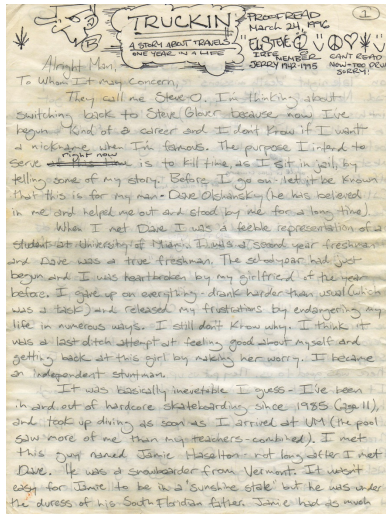 1
TRUCKIN'
A STORY ABOUT TRAVELS
ONE YEAR IN A LIFE
PROOFREAD
March 24, 1996
JERRY 1942-1995
CAN'T READ
NOW-TOO DRUNK
SORRY!
Alright Man,
To Whom It may Concern,
They call me Steve-O. I'm thinking about
switching back to Steve Glover because now I've
begun kind of a career and I don't know if I want
a nickname when I'm famous. The purpose I intend to
serve right now is to kill time, as I sit in jail, by
telling some of my story. Before I go on- let it be known
that this is for my man- Dave Olshansky (he was believed
in me and helped me out and stood by me for a long time).
When I met Dave I was a feeble representation of a
student at University of Miami. I was a second year freshman
and Dave was a true freshman. The school year had just
begun and I was heartbroken by my girlfriend of the year
before. I gave up on everything- drank harder than usual (which
was a task) and released my frustrations by endangering my
life in numerous ways. I still don't know why. I think it
was a last ditch attempt at feeling good about myself and
getting back at this girl by making her worry. I became
an independent stuntman.
It was basically inevetable I guess- I've been
in and out of hardcore skateboarding since 1985 (age 11),
and took up diving as soon as I arrived at UM (the pool
saw more of me than my teachers-combined). I met
this guy named Jamie Haselton- not long after I met
Dave. He was a snowboarder from Vermont. It wasn't
easy for Jamie to be in a "sunshine state" but he was under
the duress of his South Floridian father. Jamie had as much